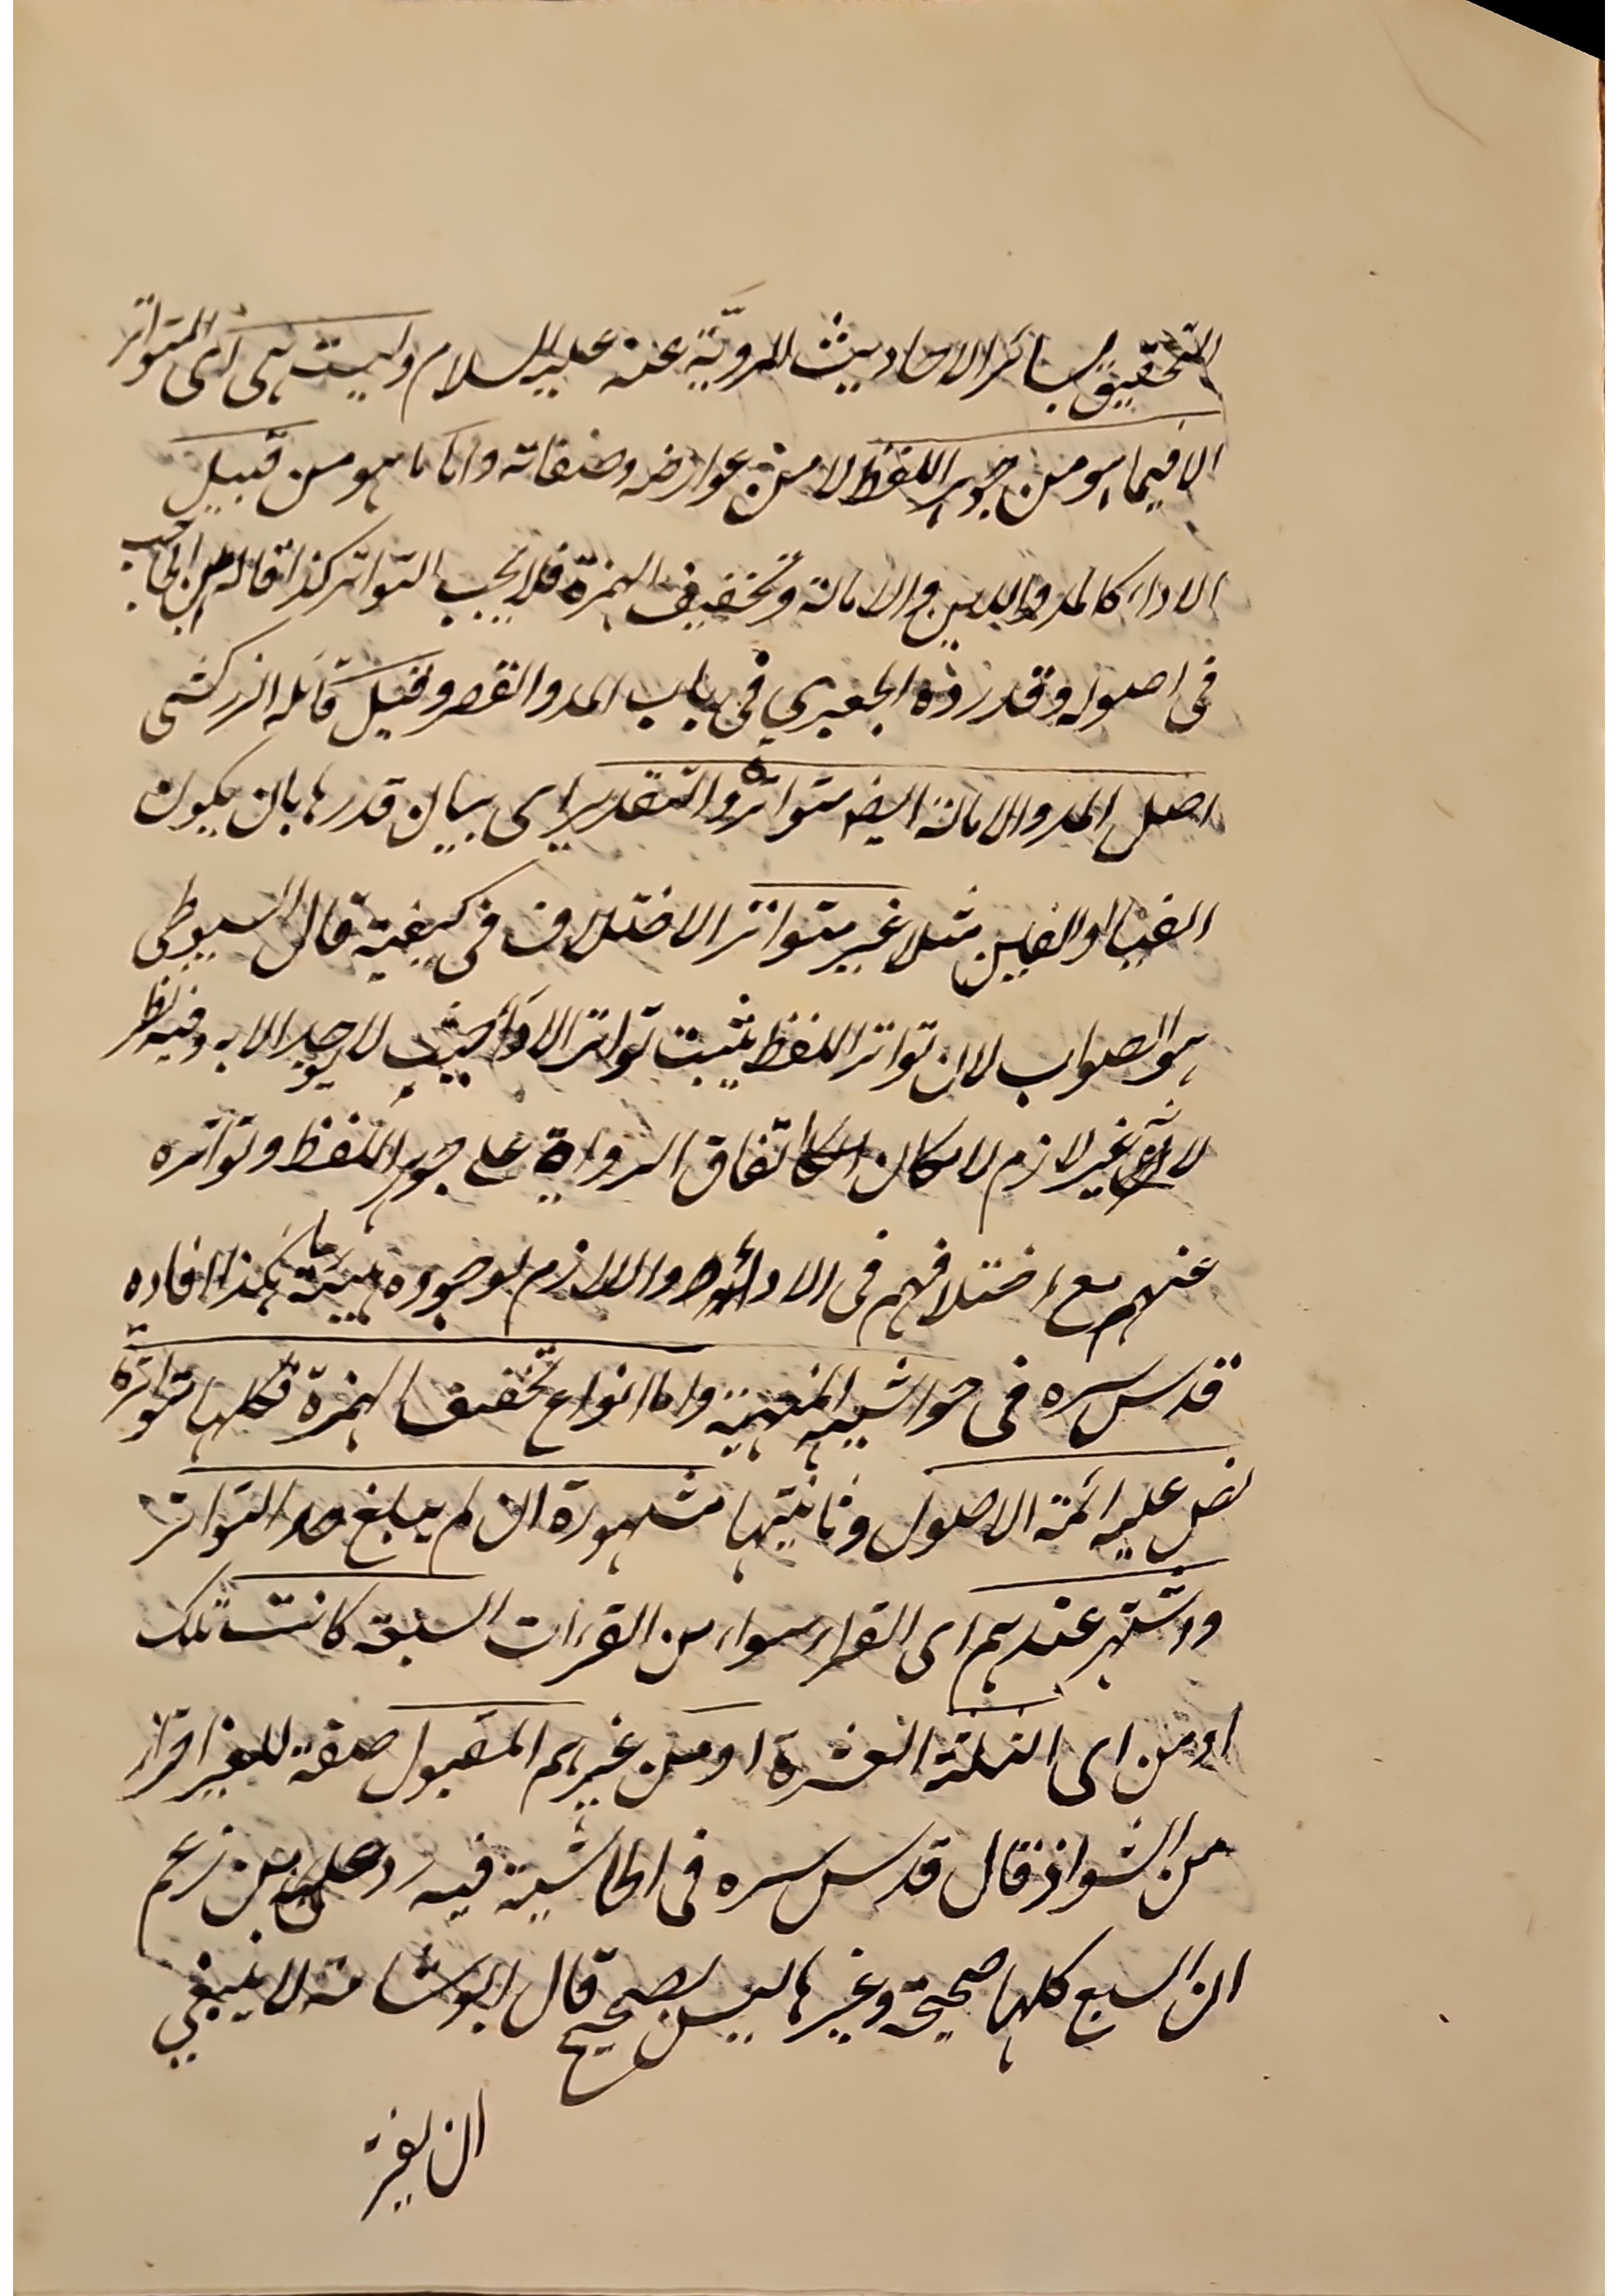 التحقيق لسائر الاحاديث المرويّة عنه عليه السلام وليست هى اى المتواتر
الا فيما هو من جوهر اللفظ لا من عوارضه وصفاته واما ما هو من قبيل
الاداء كالمد واللين والامالة وتخفيف الهمزة فلا يجب التواتر كذا قاله ابن الحاجب
فى اصوله وقد رده الجعبري فى باب المد والقصر وقيل قائله الزركشى
اصل المد والامالة ايضا متواترة والتقدير اى بيان قدرها بان يكون
الفيا او الفين مثلا غير متواتر الاختلاف فى كيفية قال السيوطى
هو الصواب لان تواتر اللفظ يثبت تواتر الاداء حيث لا يوجد الا به وفيه نظر
لانه غير لازم لامكان اتفاق الرواة على جوهر اللفظ وتواتره
عنهم مع اختلافهم فى الاداء واللازم لوجوده هيئة ما هكذا افاده
قدس سره فى حواشيه المنهية واما انواع تخفيف الهمزة فكلها متواترة
نص عليه ائمة الاصول وثانيتها مشهورة ان لم يبلغ حد التواتر
واشتهر عندهم اى القراء سواء من القراءت السبعة كانت تلك
او من اى الثلثة العشرة او من غيرهم المقبول صفة للغير احتراز
من الشواذ قال قدس سره فى الحاشية فيه رد على من زعم
ان السبع كلها صحيحة وغيرها ليس بصحيح قال ابو شامة لا ينبغي
ان يغتر